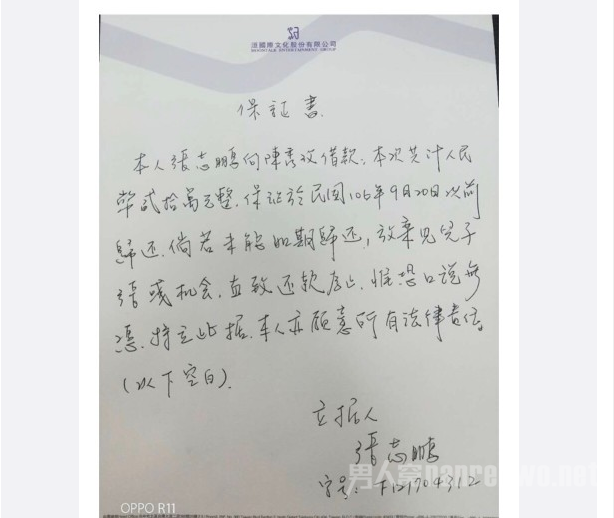 國際文化股份有限公司
保证書
本人張志鵬向陳 借款,本次共计人民
幣贰拾萬元整.保证於民国106年9月20日以前
歸还.倘若未能如期歸还,放棄见兒子
張 机会,直致还款为止,惟恐口说無
憑.特立此据.本人亦願意所有法律责任
(以下空白).
立据人
張志鵬
字号: F121704312
男人窝nanrenwo.net
OPPO R11